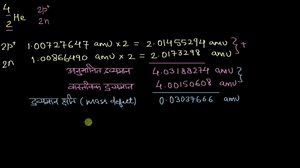 4 He 2p⁺
2 2n
2p⁺ 1.00727647 amu × 2 = 2.01455294 amu
2n 1.00866490 amu × 2 = 2.0173298 amu +
अनुमानित द्रव्यमान 4.03188274 amu
वास्तविक द्रव्यमान 4.00150608 amu
द्रव्यमान क्षति (mass defect) 0.03037666 amu